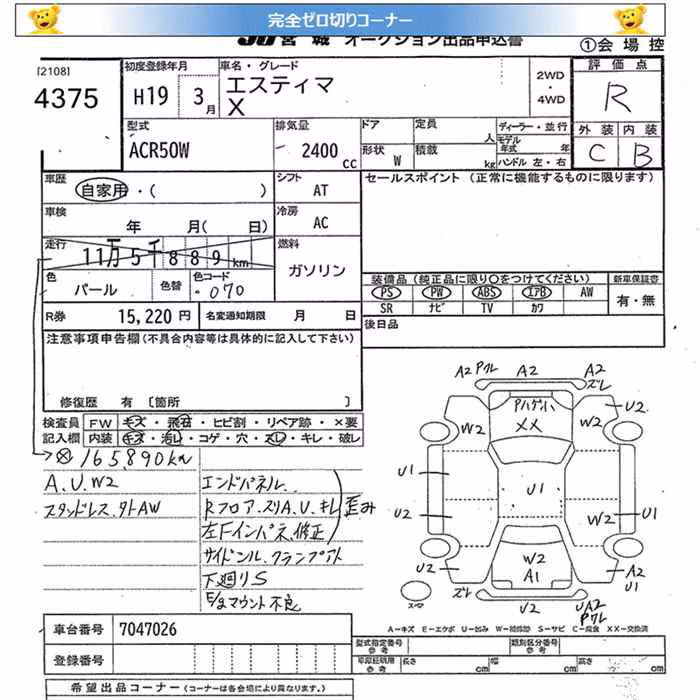 完全ゼロ切りコーナー
JU宮城 オークション出品申込書
①会場控
[2108]
4375
初度登録年月
H19 3月
車名・グレード
エスティマ
X
2WD
・
4WD
評価点
R
外装 内装
C B
型式
ACR50W
排気量
2400cc
ドア
形状 W
定員 人
積載 kg
ディーラー・並行
モデル年式 年
ハンドル 左・右
車歴
自家用・( )
シフト
AT
セールスポイント (正常に機能するものに限ります)
車検
年 月( 日)
冷房
AC
走行
11万5千889km
燃料
ガソリン
色
パール
色替
色コード
070
装備品(純正品に限り○をつけてください)
新車保証書
PS PW ABS エアB AW
有・無
SR ナビ TV カワ
R券 15,220円
名変通知期限 月 日
後日品
注意事項申告欄(不具合内容等は具体的に記入して下さい)
修復歴 有 〔箇所
検査員記入欄
FW キズ・飛石・ヒビ割・リペア跡・X要
内装 キズ・汚レ・コゲ・穴・スレ・キレ・破レ
⊗165,890km
A.U.W2
スタッドレス.外AW
エンドパネル..
Rフロア.スリA.U.キレ 歪み
左Fインパネ.修正
サイドシル.クランプ跡
下廻りS
E/gマウント不良
A2 ワレ A2 A2 ズレ
U2
W2 W2
XX
U1 U1
U2 W2 U1
U2 W2 A1 A2 U1
ズレ U2 UA2 ワレ
A－キズ E－エクボ U－凹み W－補修跡 S－サビ C－腐食 XX－交換済
車台番号 7047026
登録番号
型式指定番号
類別区分番号
車庫証明用参考
長さ cm
幅 cm
高さ cm
希望出品コーナー (コーナーは各会場により異なります。)